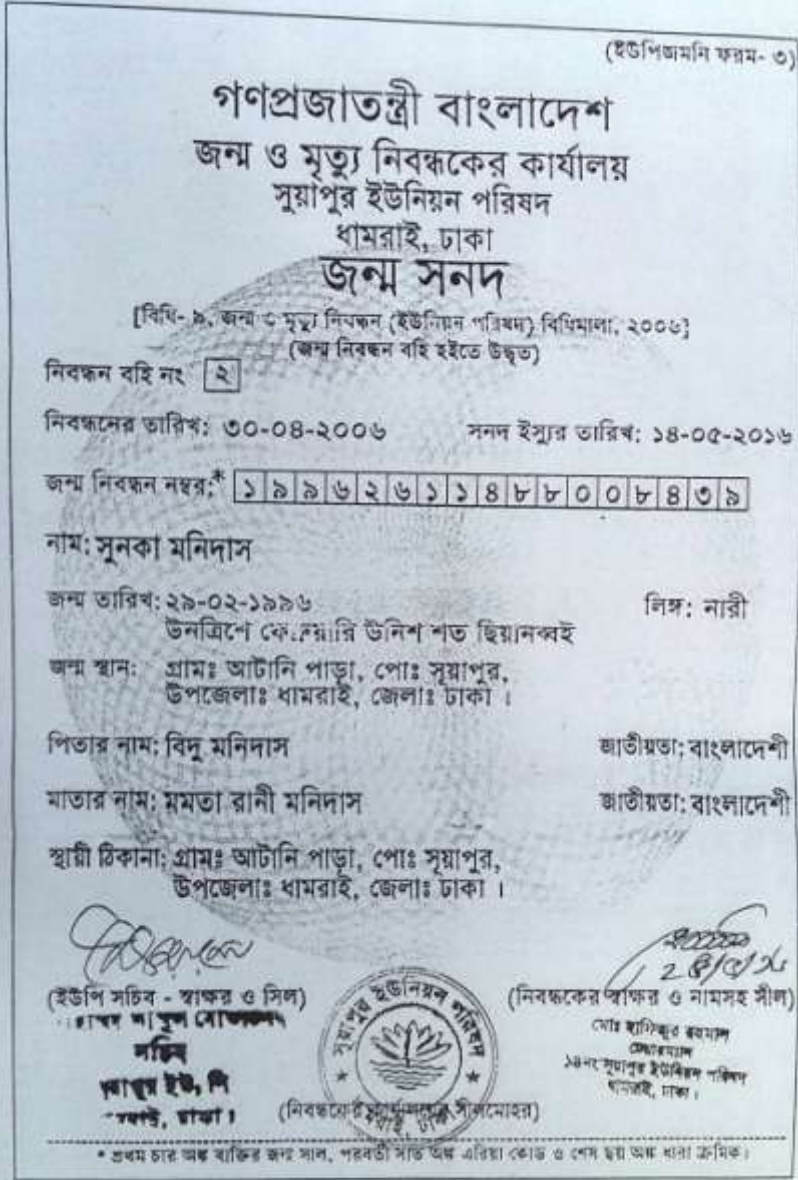 (ইউপিজমনি ফরম- ৩)
গণপ্রজাতন্ত্রী বাংলাদেশ
জন্ম ও মৃত্যু নিবন্ধকের কার্যালয়
সুয়াপুর ইউনিয়ন পরিষদ
ধামরাই, ঢাকা
জন্ম সনদ
[বিধি- ৯, জন্ম ও মৃত্যু নিবন্ধন (ইউনিয়ন পরিষদ) বিধিমালা, ২০০৬]
(জন্ম নিবন্ধন বহি হইতে উদ্ধৃত)
নিবন্ধন বহি নং ২
নিবন্ধনের তারিখ: ৩০-০৪-২০০৬ সনদ ইস্যুর তারিখ: ১৪-০৫-২০১৬
জন্ম নিবন্ধন নম্বর:* ১৯৯৬২৬১১৪৮৮০০৮৪৩৯
নাম: সুনকা মনিদাস
জন্ম তারিখ: ২৯-০২-১৯৯৬ লিঙ্গ: নারী
উনত্রিশে উনিশ শত ছিয়ানব্বই
জন্ম স্থান: গ্রামঃ আটানি পাড়া, পোঃ সূয়াপুর,
উপজেলাঃ ধামরাই, জেলাঃ ঢাকা ।
পিতার নাম: বিদু মনিদাস জাতীয়তা: বাংলাদেশী
মাতার নাম: মমতা রানী মনিদাস জাতীয়তা: বাংলাদেশী
স্থায়ী ঠিকানা: গ্রামঃ আটানি পাড়া, পোঃ সূয়াপুর,
উপজেলাঃ ধামরাই, জেলাঃ ঢাকা ।
(ইউপি সচিব - স্বাক্ষর ও সিল) (নিবন্ধকের স্বাক্ষর ও নামসহ সীল)
সচিব
ইউ, পি
ঢাকা।
সুয়াপুর ইউনিয়ন পরিষদ
মোঃ হাফিজুর রহমান
চেয়ারম্যান
১৪নং সুয়াপুর ইউনিয়ন পরিষদ
ধামরাই, ঢাকা।
(নিবন্ধকের সীলমোহর)
* প্রথম চার অঙ্ক ব্যক্তির জন্ম সাল, পরবর্তী সাত অঙ্ক এরিয়া কোড ও শেষ ছয় অঙ্ক ধারা ক্রমিক।